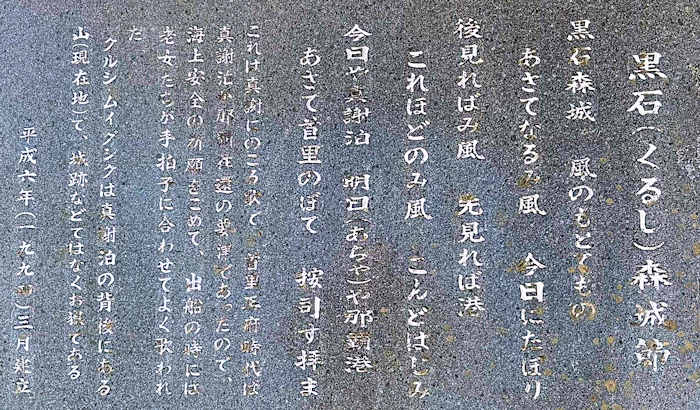 黒石(くるし)森城節
黒石森城 風のもどくもの
あさてなるみ風 今日にたぼり
後見ればみ風 先見れば港
これほどのみ風 こんどはじみ
今日や真謝泊 明日(あちや)や那覇港
あさて首里のぼて 按司す拝ま
これは真謝にのこる歌で、首里王府時代は
真謝泊が那覇往還の要津であったので、
海上安全の祈願をこめて、出船の時には
老女たちが手拍子に合わせてよく歌われ
た
クルシムイグシクは真謝泊の背後にある
山(現在地)で、城跡などではなくお嶽である
平成六年(一九九四)三月建立